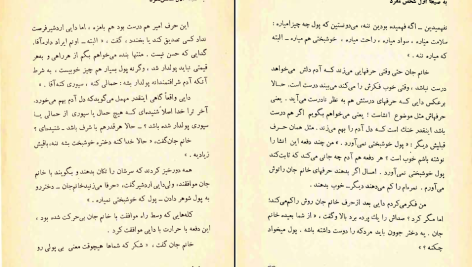 به صیغهٔ اول شخص مفرد
نفهمیدین ـ اگه فهمیده بودین ننه، می‌دونستین که پول چیز امیاره:
سلامت میاره ، سواد میاره ، راحت میاره ، خوشبختی هم میاره ـ البته
که میاره ننه . »
خانم جان حتی وقتی حرفهایی میزند که آدم دلش میخواهد
درست نباشد، وقتی خوب فکرش را می‌کند می‌بیند درست است. حالا
برعکس دایی که حرفهای درستش هم به نظر نادرست می‌آید . یعنی
حرفهاش مثل موضوع انشاست ! میخواهم بگویم اگر هم درست
باشد اینقدر خنك است که دل آدم را بهم میزند . مثل همان حرف
قبلیش دیگر : « پول خوشبختی نمی‌آورد . » کدام آدم عاقلی این را
نوشته باشم خوب است ؟ هر دفعه هم آدم چاخانی می‌کند که ثابت‌کند
پول خوشبختی نمی‌آورد . امسال اگر بدهند حرفهای خانم جان راتوش
می‌آورم . نمره‌ام را کم می‌دهند دیگر ـ خوب ، بدهند .
من فکر می‌کردم دایی بعد از حرف خانم جان روش کم می‌کند!
اما مگر کرد ؟ صداش را یك پرده برد بالا وگفت ، « از شما بعیده خانم
جان . یه دختر جوون باید مردکه را دوست داشته باشه . پول میخواد
چکنه ؟ »
این حرف امیر هم درست بود هم بامزه ، اما دایی اردشیر فرصت
نداد کسی تصدیق کند یا بخندد ، گفت ، « البته ـ اونم ایراد داره آقا.
گدایی که حسن نیست . منتها بنده می‌خواهم بگم از هر راهی و به‌هر
قیمتی نباید پولدار شد ، وگرنه پول بسیار هم چیز خوبیست ، به شرط
آنکه آدم شرافتمندانه پولدار بشه : حمالی کنه ، سپوری کنه آقا . »
دایی واقعاً گاهی اینقدر مهمل می‌گوید که دل آدم بهم می‌خورد.
آخر ترا خدا اصلاً شنیده‌ای که هیچ حمال یا سپوری از حمالی یا
سپوری پولدار شده باشد ؟ ـ حالا هرقدرهم با شرف باشد . شنیده‌ای ؟
خانم جان گفت، « حالا خدا کنه دختره خوشبخت بشه ننه، باقیش
زیادیه . »
همه دور خیز کردند که سرشان را تکان بدهند و بگویند با خانم
جان موافقند، ولی دایی اردشیر گفت، «حرفا می‌زنید خانم جان ـ دخترو
به پول شوهر دادن ، پول که خوشبختی نمیاره . »
کله‌هایی که وسط راه موافقت با خانم جان بی‌حرکت شده بود ،
این دفعه با حرارت با دایی موافقت کرد .
خانم جان گفت ، « شکر که شماها هیچوقت معنی بی پولی رو